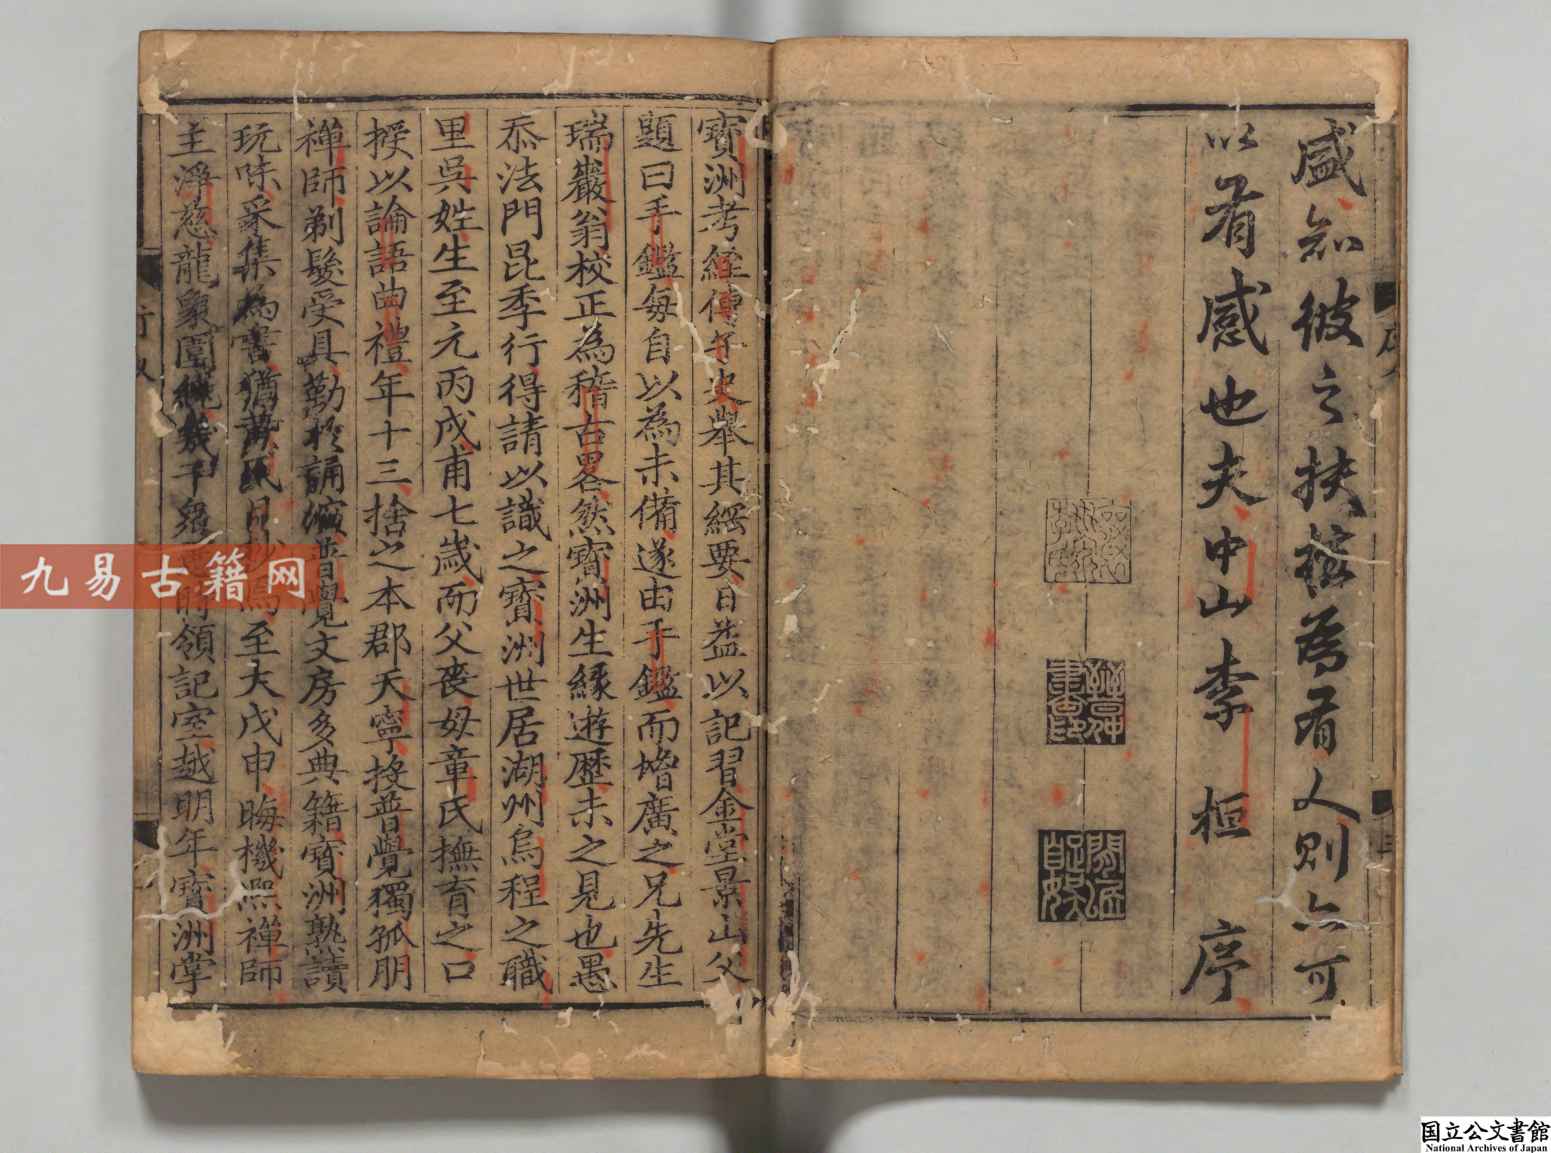 感知彼之扶極為有人則亦可
以有感也夫中山李桓序
寶洲考經傳子史舉其綱要日益以記習金堂景山父
題曰手鑑每自以為未備遂由手鑑而增廣之兄先生
瑞巖翁校正為稽古畧然寶洲生緣遊歷未之見也愚
忝法門昆季行得請以識之寶洲世居湖州烏程之職
里吳姓生至元丙戌甫七歲而父喪母章氏撫育之口
授以論語曲禮年十三捨之本郡天寧投普覺獨孤朋
禪師剃髮受具勤於誦文房多典籍寶洲熟讀
玩味采集為書猶黃氏日抄焉至大戊申晦機熙禪師
主淨慈龍象圍繞幾千領記室越明年寶洲掌
九易古籍网
国立公文書館
National Archives of Japan